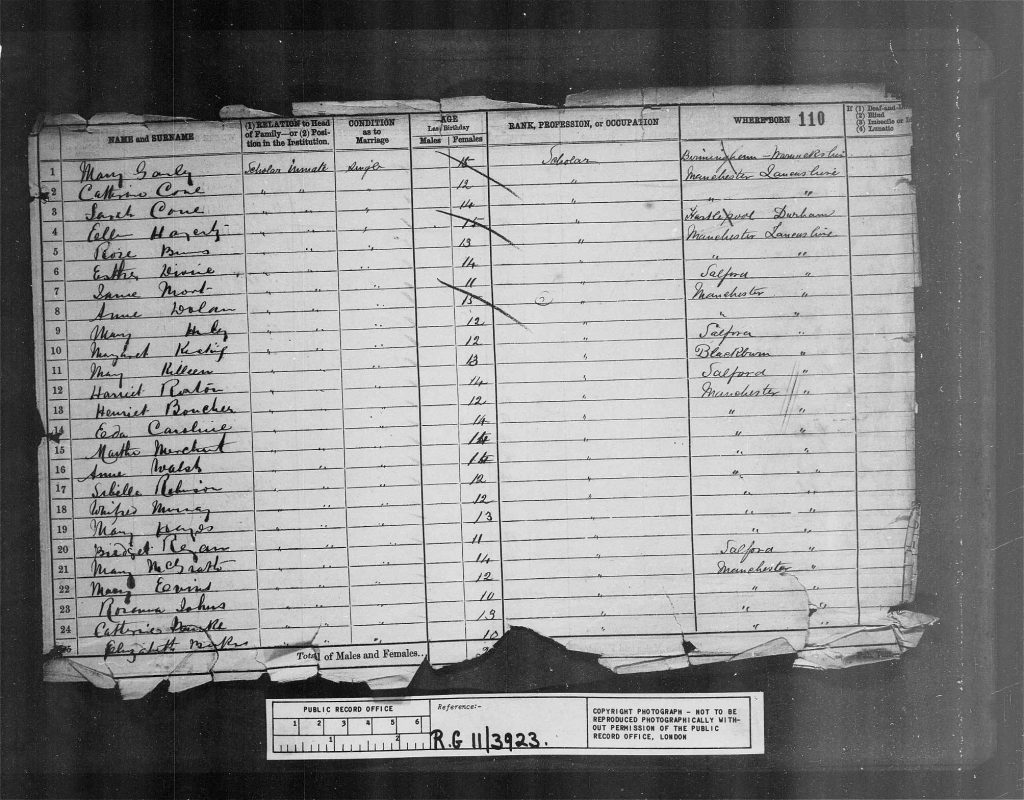 NAME and SURNAME (1) RELATION to Head of Family—or (2) Position in the Institution. CONDITION as to Marriage AGE Last Birthday Males Females RANK, PROFESSION, or OCCUPATION WHERE BORN 110 If (1) Deaf-and- (2) Blind (3) Imbecile or (4) Lunatic
1 Mary Scholar Inmate Single 15 Scholar Birmingham Warwickshire
2 Catherine Cone " " " 12 " Manchester Lancashire
3 Sarah Cone " " " 14 " " "
4 Ellen Hagerty " " " 15 " Hartlepool Durham
5 Rose Burns " " " 13 " Manchester Lancashire
6 Esther Divine " " " 14 " " "
7 Mort " " " 11 " Salford "
8 Anne Dolan " " " 15 " Manchester "
9 Mary " " " 12 " " "
10 Margaret " " " 12 " Salford "
11 Mary Killeen " " " 13 " Blackburn "
12 Harriet " " " 14 " Salford "
13 Henriet Boucher " " " 12 " Manchester "
14 Caroline " " " 14 " " "
15 Martha Merchant " " " 14 " " "
16 Anne Walsh " " " 14 " " "
17 Sibella Robinson " " " 12 " " "
18 Winifred Murray " " " 12 " " "
19 Mary Hayes " " " 13 " " "
20 Bridget Regan " " " 11 " " "
21 Mary McGrath " " " 14 " Salford "
22 Mary Evins " " " 12 " Manchester "
23 Rosanna Johns " " " 10 " " "
24 Catherine " " " 13 " " "
25 Elizabeth " " " 10 " " "
Total of Males and Females...
PUBLIC RECORD OFFICE
1 2 3 4 5 6
1 2
Reference:-
R.G 11/3923.
COPYRIGHT PHOTOGRAPH - NOT TO BE
REPRODUCED PHOTOGRAPHICALLY WITH-
OUT PERMISSION OF THE PUBLIC
RECORD OFFICE, LONDON